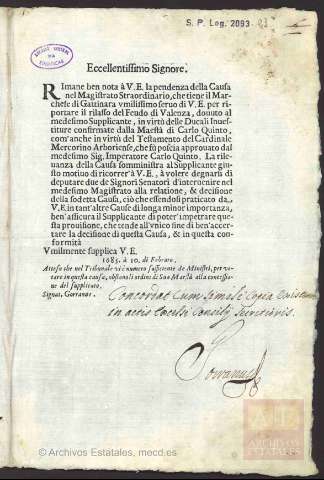 S. P. Leg. 2093
Eccellentissimo Signore.
RImane ben nota à V. E. la pendenza della Causa
nel Magistrato Straordinario, che tiene il Mar-
chese di Gattinara vmilissimo seruo di V. E. per ri-
portare il rilasso del Feudo di Valenza, douuto al
medesimo Supplicante, in virtù delle Ducali Inue-
stiture confirmate dalla Maestà di Carlo Quinto,
com'anche in virtù del Testamento del Cardinale
Mercorino Arboriense, che fù poscia approuato dal
medesimo Sig. Imperatore Carlo Quinto. La rile-
uanza della Causa somministra al Supplicante giu-
sto motiuo di ricorrer'à V. E., à volere degnarsi di
deputare due de Signori Senatori d'interuenire nel
medesimo Magistrato alla relatione, & decisione
della sodetta Causa, ciò che essendosi praticato da
V. E. in tant'altre Cause di longa minor importanza,
ben'assicura il Supplicante di poter'impetrare que-
sta prouisione, che tende all'vnico fine di ben'accer-
tare la decisione di questa Causa, & in questa con-
formità
Vmilmente supplica V. E.
1685. à 10. di Febraro.
Atteso che nel Tribunale vi è numero sufficiente de Ministri, per vo-
tare in questa causa, ostano li ordini di Sua Maestà alla concessio-
ne del supplicato.
Signat. Gorranus.
Concordat Cum simili Copia existente
in actis Excelsi Consilij Secretioris.
Gorranus
ARCHIVOS
ESTATALES
© Archivos Estatales, mecd.es